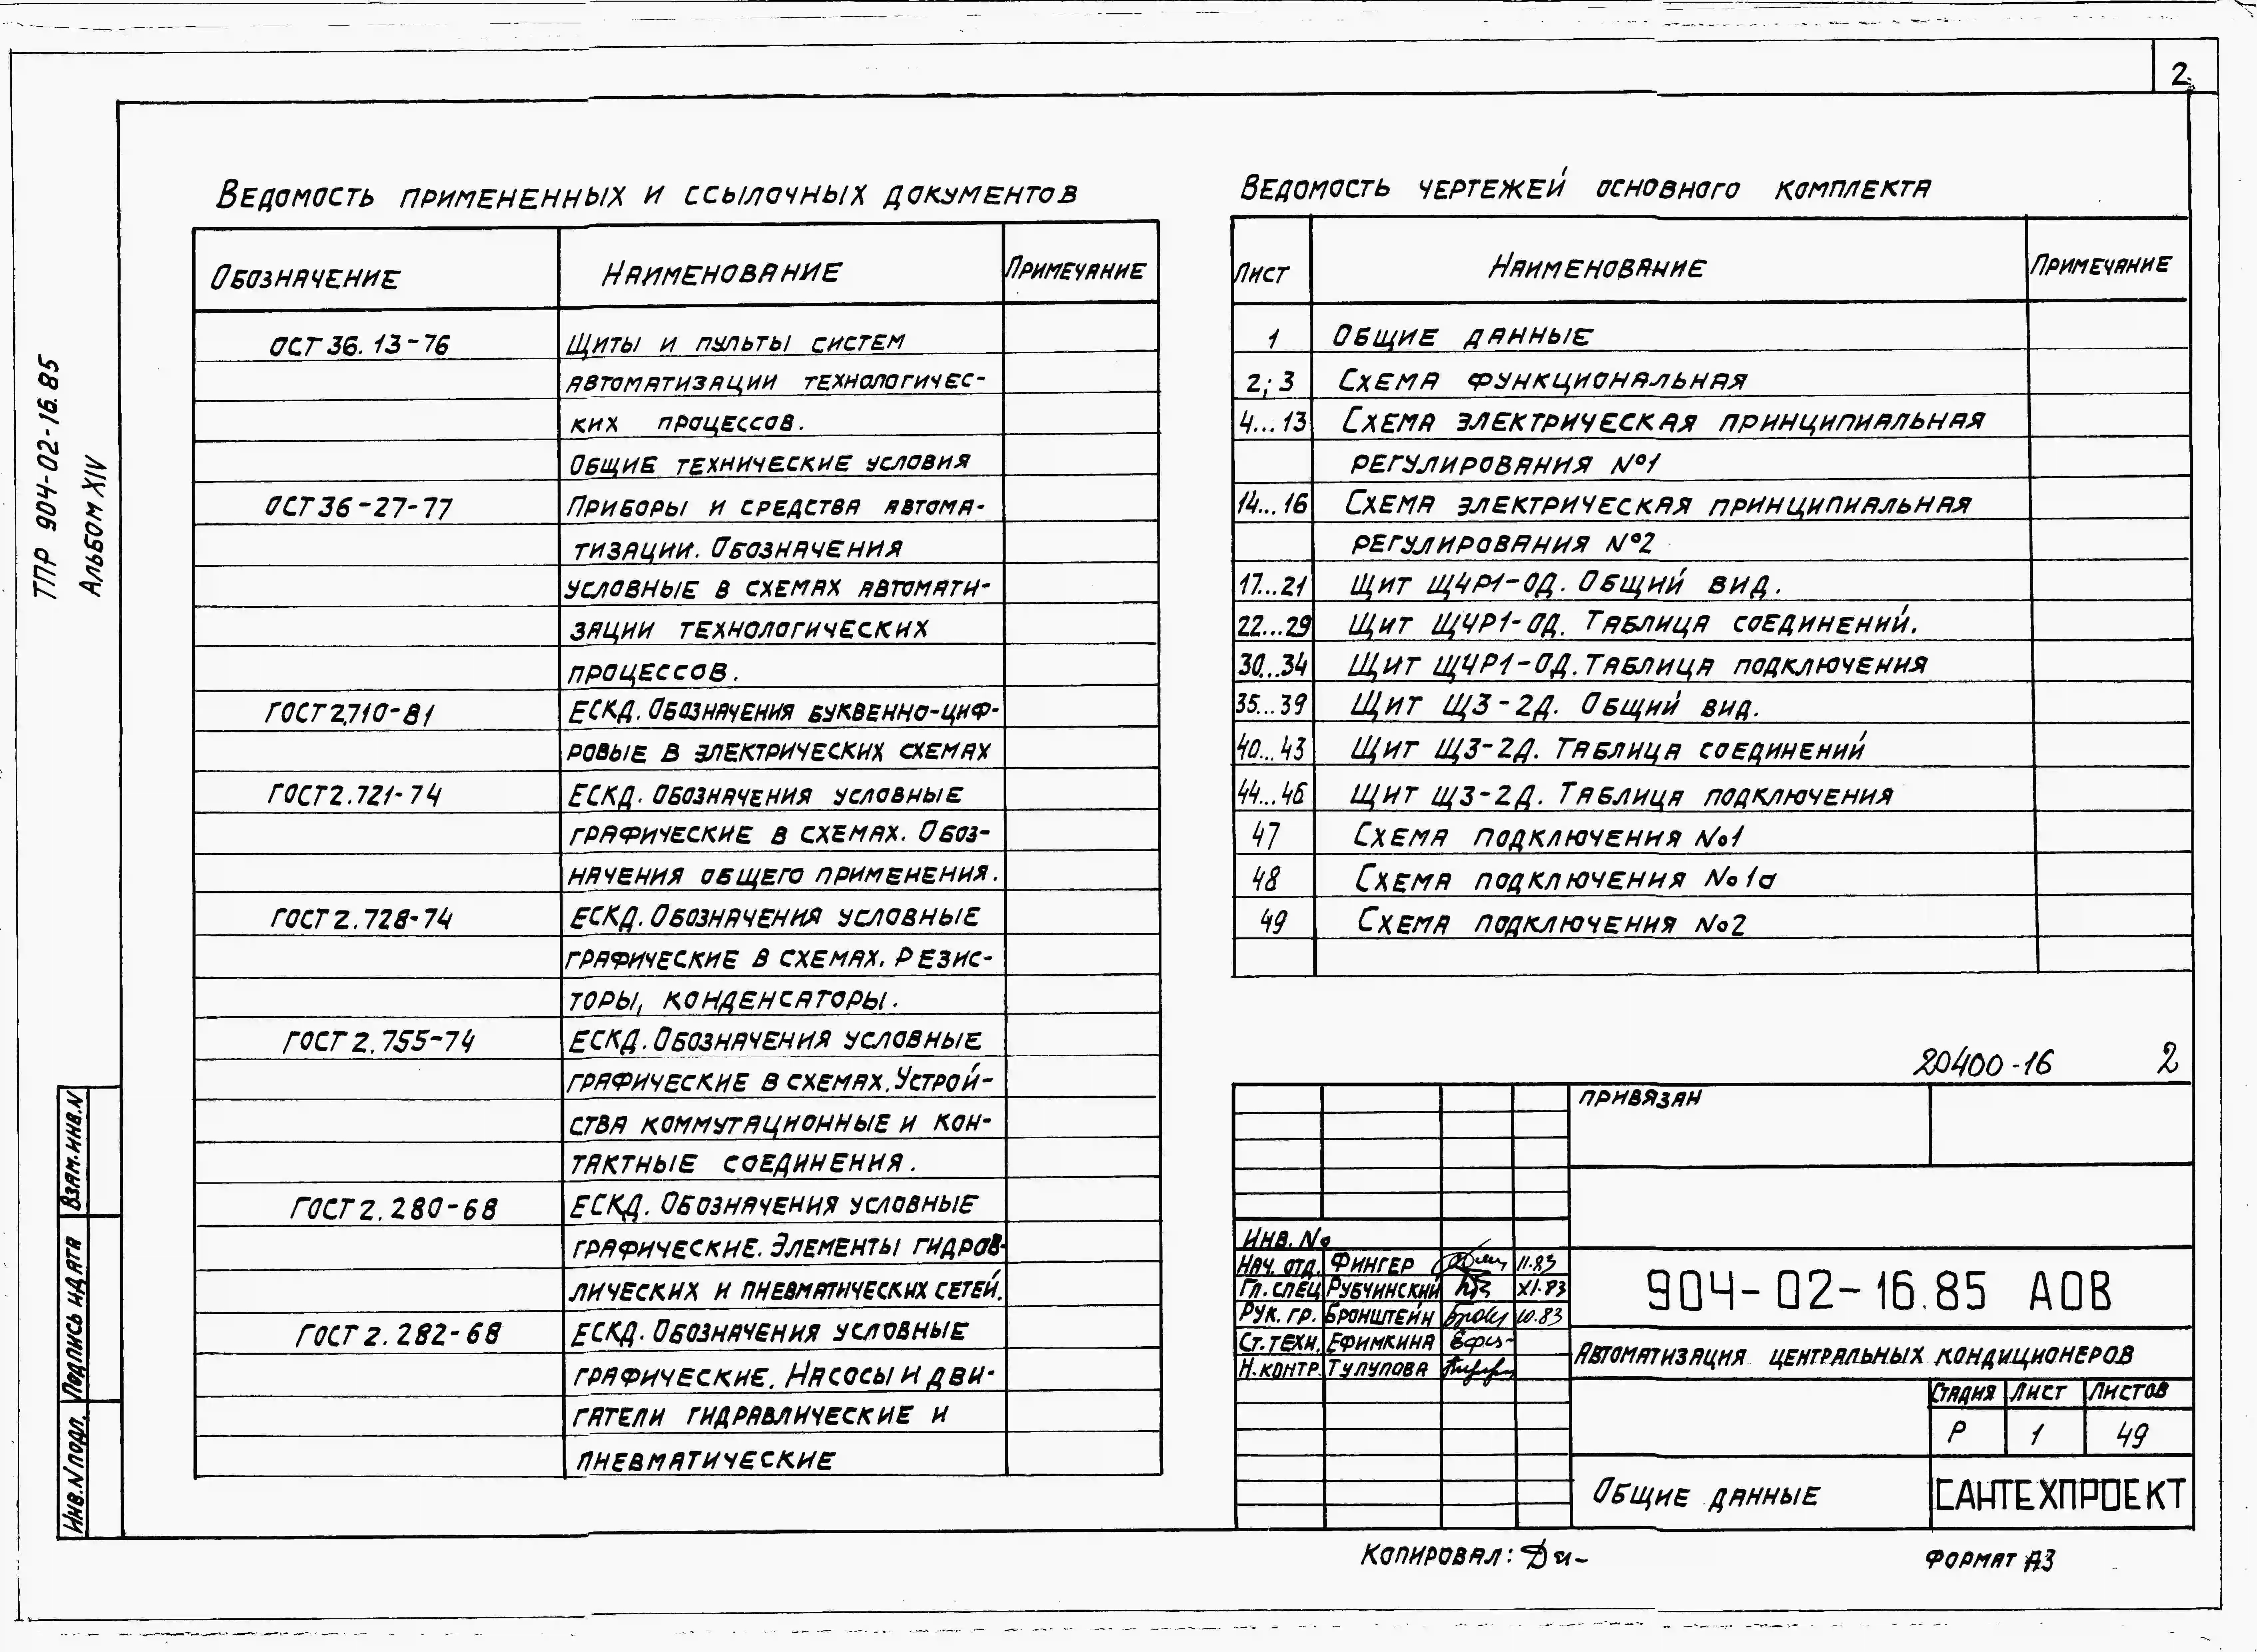 2
ТПР 904-02-16.85
Альбом XIV
Ведомость примененных и ссылочных документов
Обозначение Наименование Примечание
ОСТ 36.13-76 Щиты и пульты систем
автоматизации технологичес-
ких процессов.
Общие технические условия
ОСТ 36-27-77 Приборы и средства автома-
тизации. Обозначения
условные в схемах автомати-
зации технологических
процессов.
ГОСТ 2.710-81 ЕСКД. Обозначения буквенно-циф-
ровые в электрических схемах
ГОСТ 2.721-74 ЕСКД. Обозначения условные
графические в схемах. Обоз-
начения общего применения.
ГОСТ 2.728-74 ЕСКД. Обозначения условные
графические в схемах. Резис-
торы, конденсаторы.
ГОСТ 2.755-74 ЕСКД. Обозначения условные
графические в схемах. Устрой-
ства коммутационные и кон-
тактные соединения.
ГОСТ 2.280-68 ЕСКД. Обозначения условные
графические. Элементы гидрав-
лических и пневматических сетей.
ГОСТ 2.282-68 ЕСКД. Обозначения условные
графические. Насосы и дви-
гатели гидравлические и
пневматические
Ведомость чертежей основного комплекта
Лист Наименование Примечание
1 Общие данные
2; 3 Схема функциональная
4...13 Схема электрическая принципиальная
регулирования №1
14...16 Схема электрическая принципиальная
регулирования №2
17...21 Щит ЩЧР1-ОД. Общий вид.
22...29 Щит ЩЧР1-ОД. Таблица соединений.
30...34 Щит ЩЧР1-ОД. Таблица подключения
35...39 Щит ЩЗ-2Д. Общий вид.
40...43 Щит ЩЗ-2Д. Таблица соединений
44...46 Щит ЩЗ-2Д. Таблица подключения
47 Схема подключения №1
48 Схема подключения №1а
49 Схема подключения №2
20400-16 2
Привязан
Инв. №
Нач. отд. Фингер 11.83
Гл. спец Рубчинский XI.83
Рук. гр. Бронштейн 10.83
Ст. техн. Ефимкина
Н.контр. Тулупова
904-02-16.85 АОВ
Автоматизация центральных кондиционеров
Стадия Лист Листов
Р 1 49
Общие данные САНТЕХПРОЕКТ
Взам.инв.N
Подпись и дата
Инв.N подл.
Копировал:
Формат А3